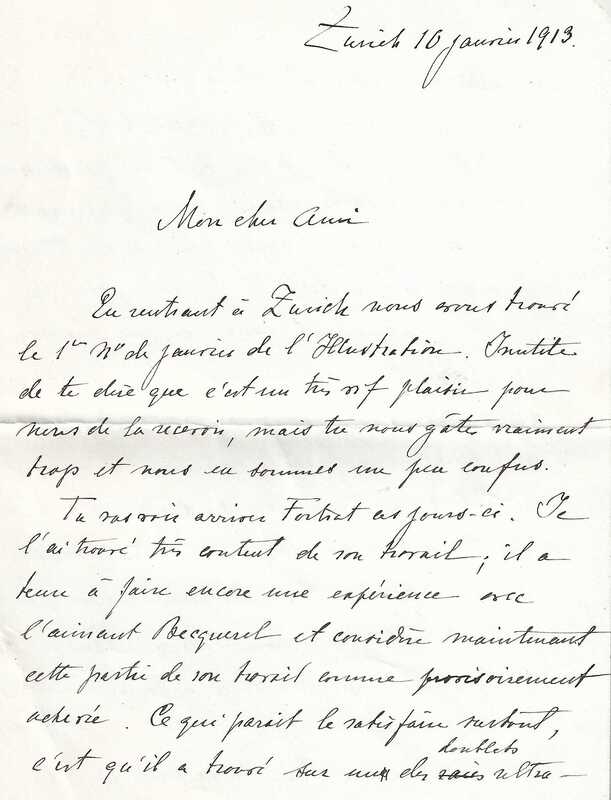 Zurich 10 janvier 1913.
Mon cher Ami
En rentrant à Zurich nous avons trouvé
le 1er No de janvier de l'Illustration. Inutile
de te dire que c'est un très vif plaisir pour
nous de la recevoir, mais tu nous gâtes vraiment
trop et nous en sommes un peu confus.
Tu vas voir arriver Fortrat ces jours-ci. Je
l'ai trouvé très content de son travail ; il a
tenu à faire encore une expérience avec
l'aimant Becquerel et considère maintenant
cette partie de son travail comme provisoirement
achevée. Ce qui parait le satisfaire surtout,
doublets
c'est qu'il a trouvé sur des raies ultra-